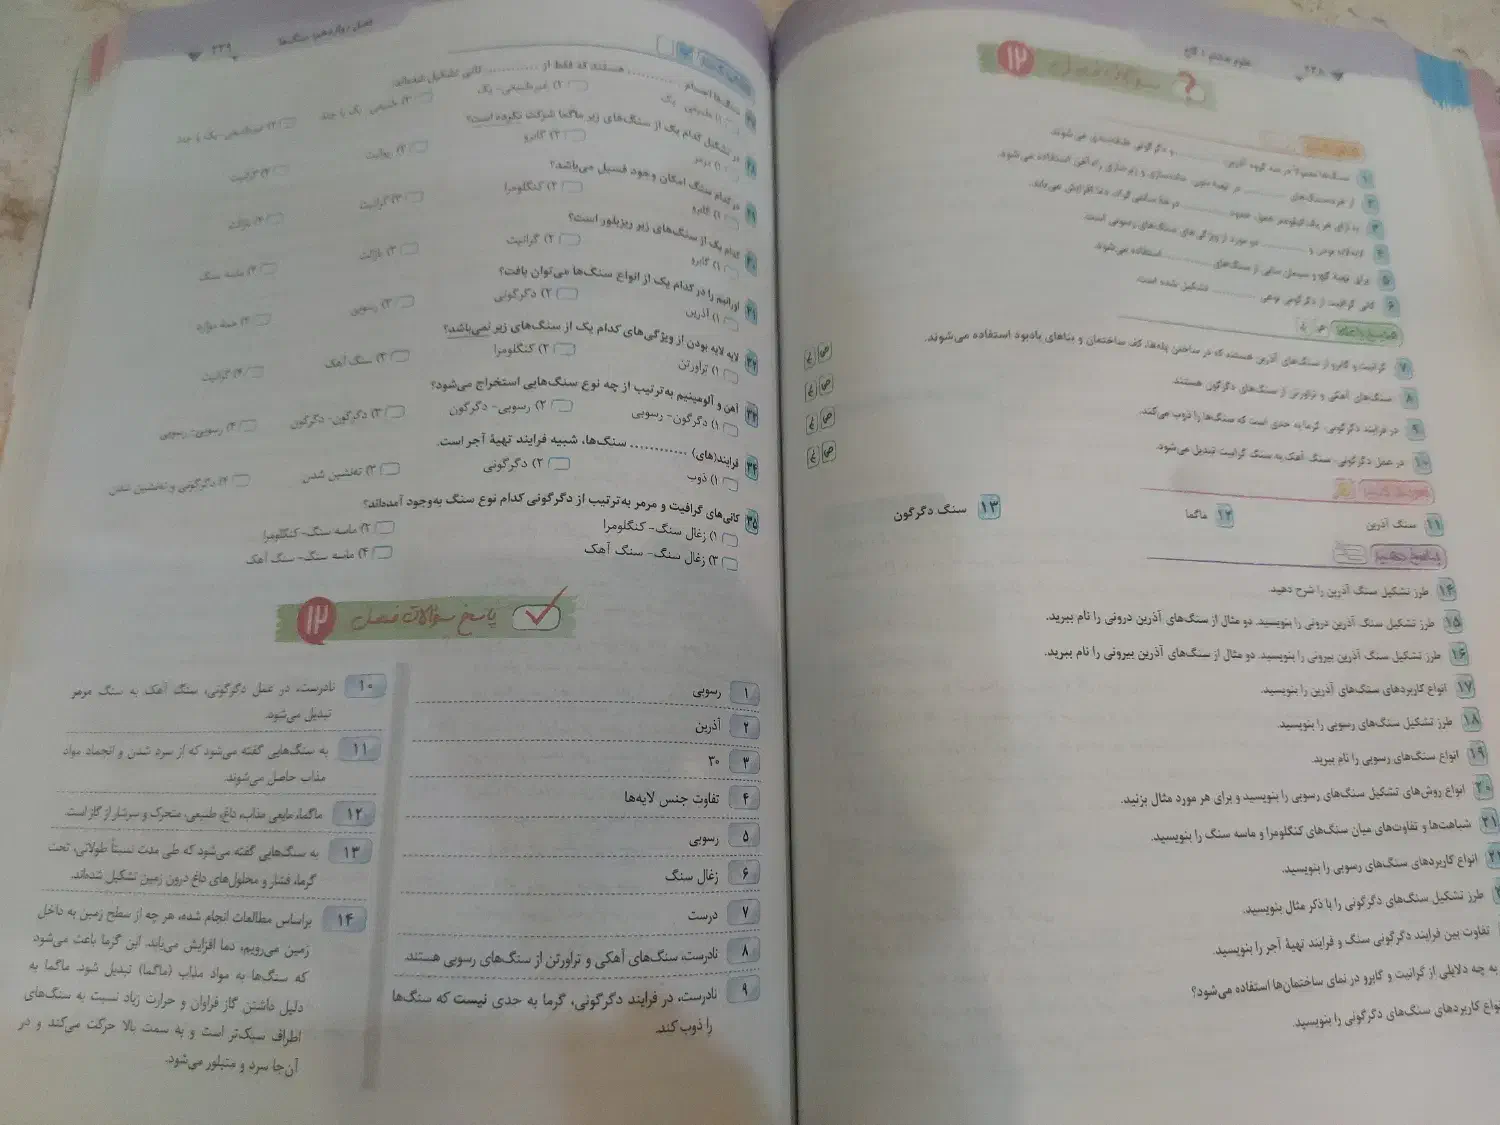 علوم هشتم
۲۳۸
سؤالات فصل ۱۲
۱ سنگ‌ها معمولاً در سه گروه آذرین، .......... و دگرگونی طبقه‌بندی می‌شوند.
۲ از خرده‌سنگ‌های .......... در تهیهٔ بتون، جاده‌سازی و زیرسازی راه‌آهن استفاده می‌شود.
۳ به ازای هر یک کیلومتر عمق، حدود .......... درجهٔ سانتی‌گراد، دما افزایش می‌یابد.
۴ لایه‌لایه بودن و .......... دو مورد از ویژگی‌های سنگ‌های رسوبی است.
۵ برای تهیهٔ گچ و سیمان بنایی از سنگ‌های .......... استفاده می‌شود.
۶ کانی گرافیت از دگرگونی نوعی .......... تشکیل شده است.
ص غ
۷ گرانیت و گابرو از سنگ‌های آذرین هستند که در ساختن پله‌ها، کف ساختمان و بناهای یادبود استفاده می‌شوند. ص غ
۸ سنگ‌های آهکی و تراورتن از سنگ‌های دگرگون هستند. ص غ
۹ در فرایند دگرگونی، گرما به حدی است که سنگ‌ها را ذوب می‌کند. ص غ
۱۰ در عمل دگرگونی، سنگ آهک به سنگ گرافیت تبدیل می‌شود. ص غ
۱۱ سنگ آذرین ۱۲ ماگما ۱۳ سنگ دگرگون
پاسخ دهید
۱۴ طرز تشکیل سنگ آذرین را شرح دهید.
۱۵ طرز تشکیل سنگ آذرین درونی را بنویسید. دو مثال از سنگ‌های آذرین درونی را نام ببرید.
۱۶ طرز تشکیل سنگ آذرین بیرونی را بنویسید. دو مثال از سنگ‌های آذرین بیرونی را نام ببرید.
۱۷ انواع کاربردهای سنگ‌های آذرین را بنویسید.
۱۸ طرز تشکیل سنگ‌های رسوبی را بنویسید.
۱۹ انواع سنگ‌های رسوبی را نام ببرید.
۲۰ انواع روش‌های تشکیل سنگ‌های رسوبی را بنویسید و برای هر مورد مثال بزنید.
۲۱ شباهت‌ها و تفاوت‌های میان سنگ‌های کنگلومرا و ماسه سنگ را بنویسید.
۲۲ انواع کاربردهای سنگ‌های رسوبی را بنویسید.
طرز تشکیل سنگ‌های دگرگونی را با ذکر مثال بنویسید.
تفاوت بین فرایند دگرگونی سنگ و فرایند تهیهٔ آجر را بنویسید.
به چه دلایلی از گرانیت و گابرو در نمای ساختمان‌ها استفاده می‌شود؟
انواع کاربردهای سنگ‌های دگرگونی را بنویسید.
فصل دوازدهم: سنگ‌ها
۲۳۹
سنگ‌ها اجسام .......... هستند که فقط از .......... کانی تشکیل شده‌اند.
۱) طبیعی- یک ۲) غیرطبیعی- یک ۳) طبیعی- یک یا چند ۴) غیرطبیعی- یک یا چند
۲۸ در تشکیل کدام یک از سنگ‌های زیر ماگما شرکت نکرده است؟
۱) مرمر ۲) گابرو ۳) ریولیت ۴) گرانیت
۲۹ در کدام سنگ امکان وجود فسیل می‌باشد؟
۱) گابرو ۲) کنگلومرا ۳) گرانیت ۴) بازالت
۳۰ کدام یک از سنگ‌های زیر ریزبلور است؟
۱) گابرو ۲) گرانیت ۳) بازالت ۴) ماسه سنگ
۳۱ اورانیم را در کدام یک از انواع سنگ‌ها می‌توان یافت؟
۱) آذرین ۲) دگرگونی ۳) رسوبی ۴) همه موارد
۳۲ لایه لایه بودن از ویژگی‌های کدام یک از سنگ‌های زیر نمی‌باشد؟
۱) تراورتن ۲) کنگلومرا ۳) سنگ آهک ۴) گرانیت
۳۳ آهن و آلومینیم به‌ترتیب از چه نوع سنگ‌هایی استخراج می‌شود؟
۱) دگرگون- رسوبی ۲) رسوبی- دگرگون ۳) دگرگون- دگرگون ۴) رسوبی- رسوبی
۳۴ فرایند(های) .......... سنگ‌ها، شبیه فرایند تهیهٔ آجر است.
۱) ذوب ۲) دگرگونی ۳) ته‌نشین شدن ۴) دگرگونی و ته‌نشین شدن
۳۵ کانی‌های گرافیت و مرمر به‌ترتیب از دگرگونی کدام نوع سنگ به‌وجود آمده‌اند؟
۱) زغال سنگ- کنگلومرا ۲) ماسه سنگ- کنگلومرا
۳) زغال سنگ- سنگ آهک ۴) ماسه سنگ- سنگ آهک
پاسخ سؤالات فصل ۱۲
۱ رسوبی
۲ آذرین
۳ ۳۰
۴ تفاوت جنس لایه‌ها
۵ رسوبی
۶ زغال سنگ
۷ درست
۸ نادرست، سنگ‌های آهکی و تراورتن از سنگ‌های رسوبی هستند.
۹ نادرست، در فرایند دگرگونی، گرما به حدی نیست که سنگ‌ها
را ذوب کند.
۱۰ نادرست، در عمل دگرگونی، سنگ آهک به سنگ مرمر
تبدیل می‌شود.
۱۱ به سنگ‌هایی گفته می‌شود که از سرد شدن و انجماد مواد
مذاب حاصل می‌شوند.
۱۲ ماگما، مایعی مذاب، داغ، طبیعی، متحرک و سرشار از گاز است.
۱۳ به سنگ‌هایی گفته می‌شود که طی مدت نسبتاً طولانی، تحت
گرما، فشار و محلول‌های داغ درون زمین تشکیل شده‌اند.
۱۴ براساس مطالعات انجام شده، هر چه از سطح زمین به داخل
زمین می‌رویم، دما افزایش می‌یابد. این گرما باعث می‌شود
که سنگ‌ها به مواد مذاب (ماگما) تبدیل شود. ماگما به
دلیل داشتن گاز فراوان و حرارت زیاد نسبت به سنگ‌های
اطراف سبک‌تر است و به سمت بالا حرکت می‌کند و در
آن‌جا سرد و متبلور می‌شود.